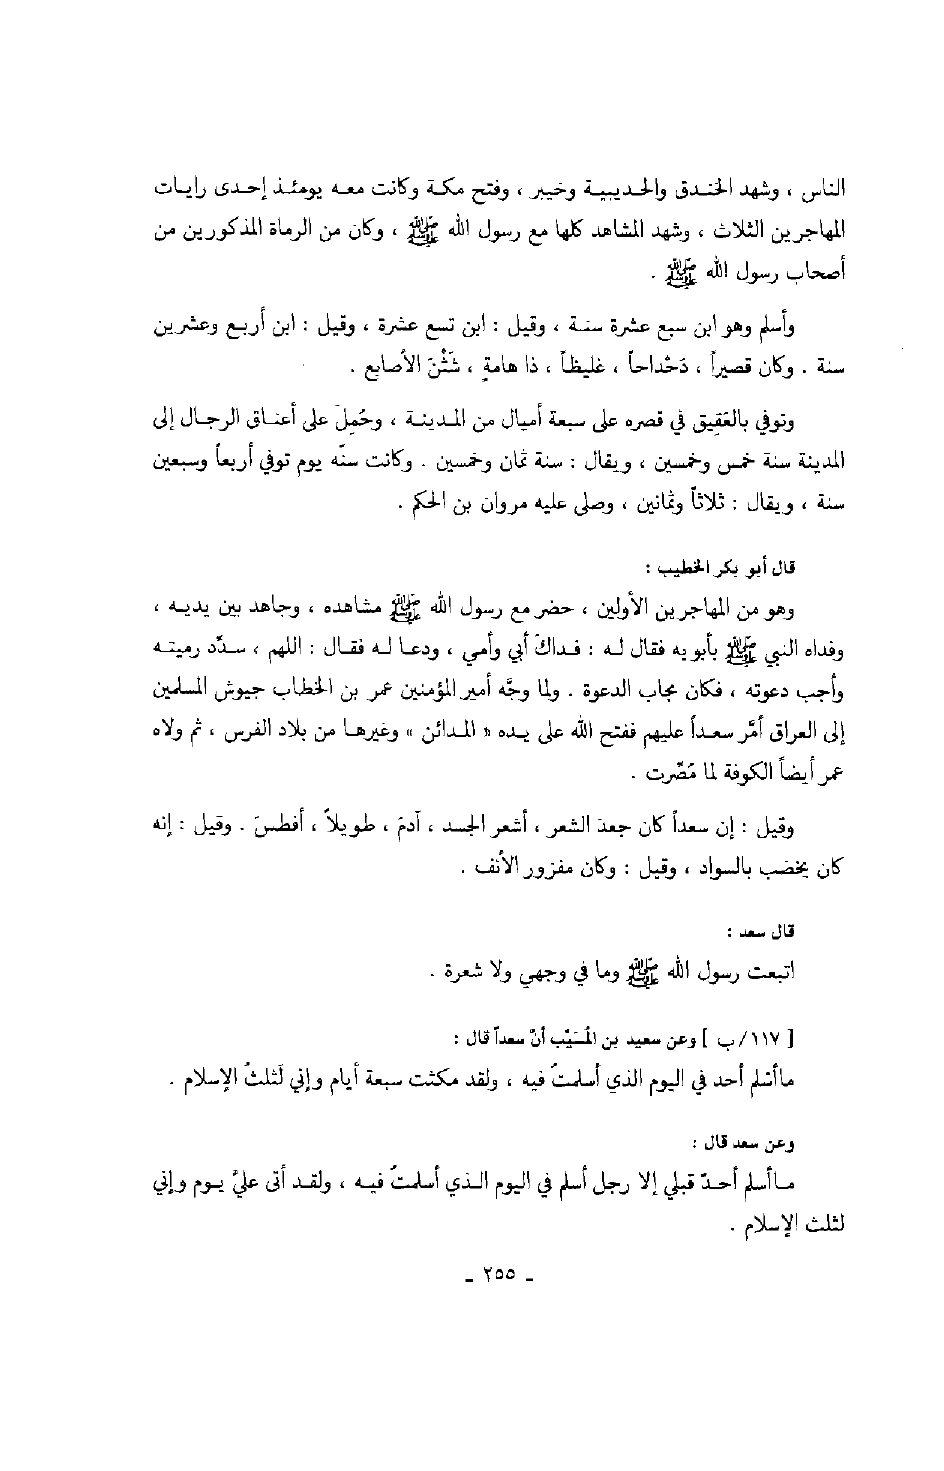 الناس ، وشهد الخندق والحديبية وخيبر ، وفتح مكة وكانت معه يومئذ إحدى رايات
المهاجرين الثلاث ، وشهد المشاهد كلها مع رسول الله ﷺ ، وكان من الرماة المذكورين من
أصحاب رسول الله ﷺ .
وأسلم وهو ابن سبع عشرة سنة ، وقيل : ابن تسع عشرة ، وقيل : ابن أربع وعشرين
سنة . وكان قصيراً ، دَحْداحاً ، غليظاً ، ذا هامةٍ ، شَثْنَ الأصابع .
وتوفي بالعَقِيق في قصره على سبعة أميال من المدينة ، وحُمِلَ على أعناق الرجال إلى
المدينة سنة خمس وخمسين ، ويقال : سنة ثمان وخمسين . وكانت سنّه يوم توفي أربعاً وسبعين
سنة ، ويقال : ثلاثاً وثمانين ، وصلى عليه مروان بن الحكم .
قال أبو بكر الخطيب :
وهو من المهاجرين الأولين ، حضر مع رسول الله ﷺ مشاهده ، وجاهد بين يديه ،
وفداه النبي ﷺ بأبويه فقال له : فداكَ أبي وأمي ، ودعا له فقال : اللهم ، سدِّد رميته
وأجب دعوته ، فكان مجاب الدعوة . ولما وجَّه أمير المؤمنين عمر بن الخطاب جيوش المسلمين
إلى العراق أمَّر سعداً عليهم ففتح الله على يده « المدائن » وغيرها من بلاد الفرس ، ثم ولاه
عمر أيضاً الكوفة لما مُصِّرت .
وقيل : إن سعداً كان جعدَ الشعر ، أشعر الجسد ، آدمَ ، طويلاً ، أفطسَ . وقيل : إنه
كان يخضب بالسواد ، وقيل : وكان مفزور الأنف .
قال سعد :
اتبعت رسول الله ﷺ وما في وجهي ولا شعرة .
[ ١١٧/ب ] وعن سعيد بن المُسَيّب أنّ سعداً قال :
ماأسلم أحد في اليوم الذي أسلمتُ فيه ، ولقد مكثت سبعة أيام وإني لَثلثُ الإسلام .
وعن سعد قال :
ماأسلم أحدّ قبلي إلا رجل أسلم في اليوم الذي أسلمتُ فيه ، ولقد أتى عليّ يوم وإني
لثلث الإسلام .
ـ ٢٥٥ ـ